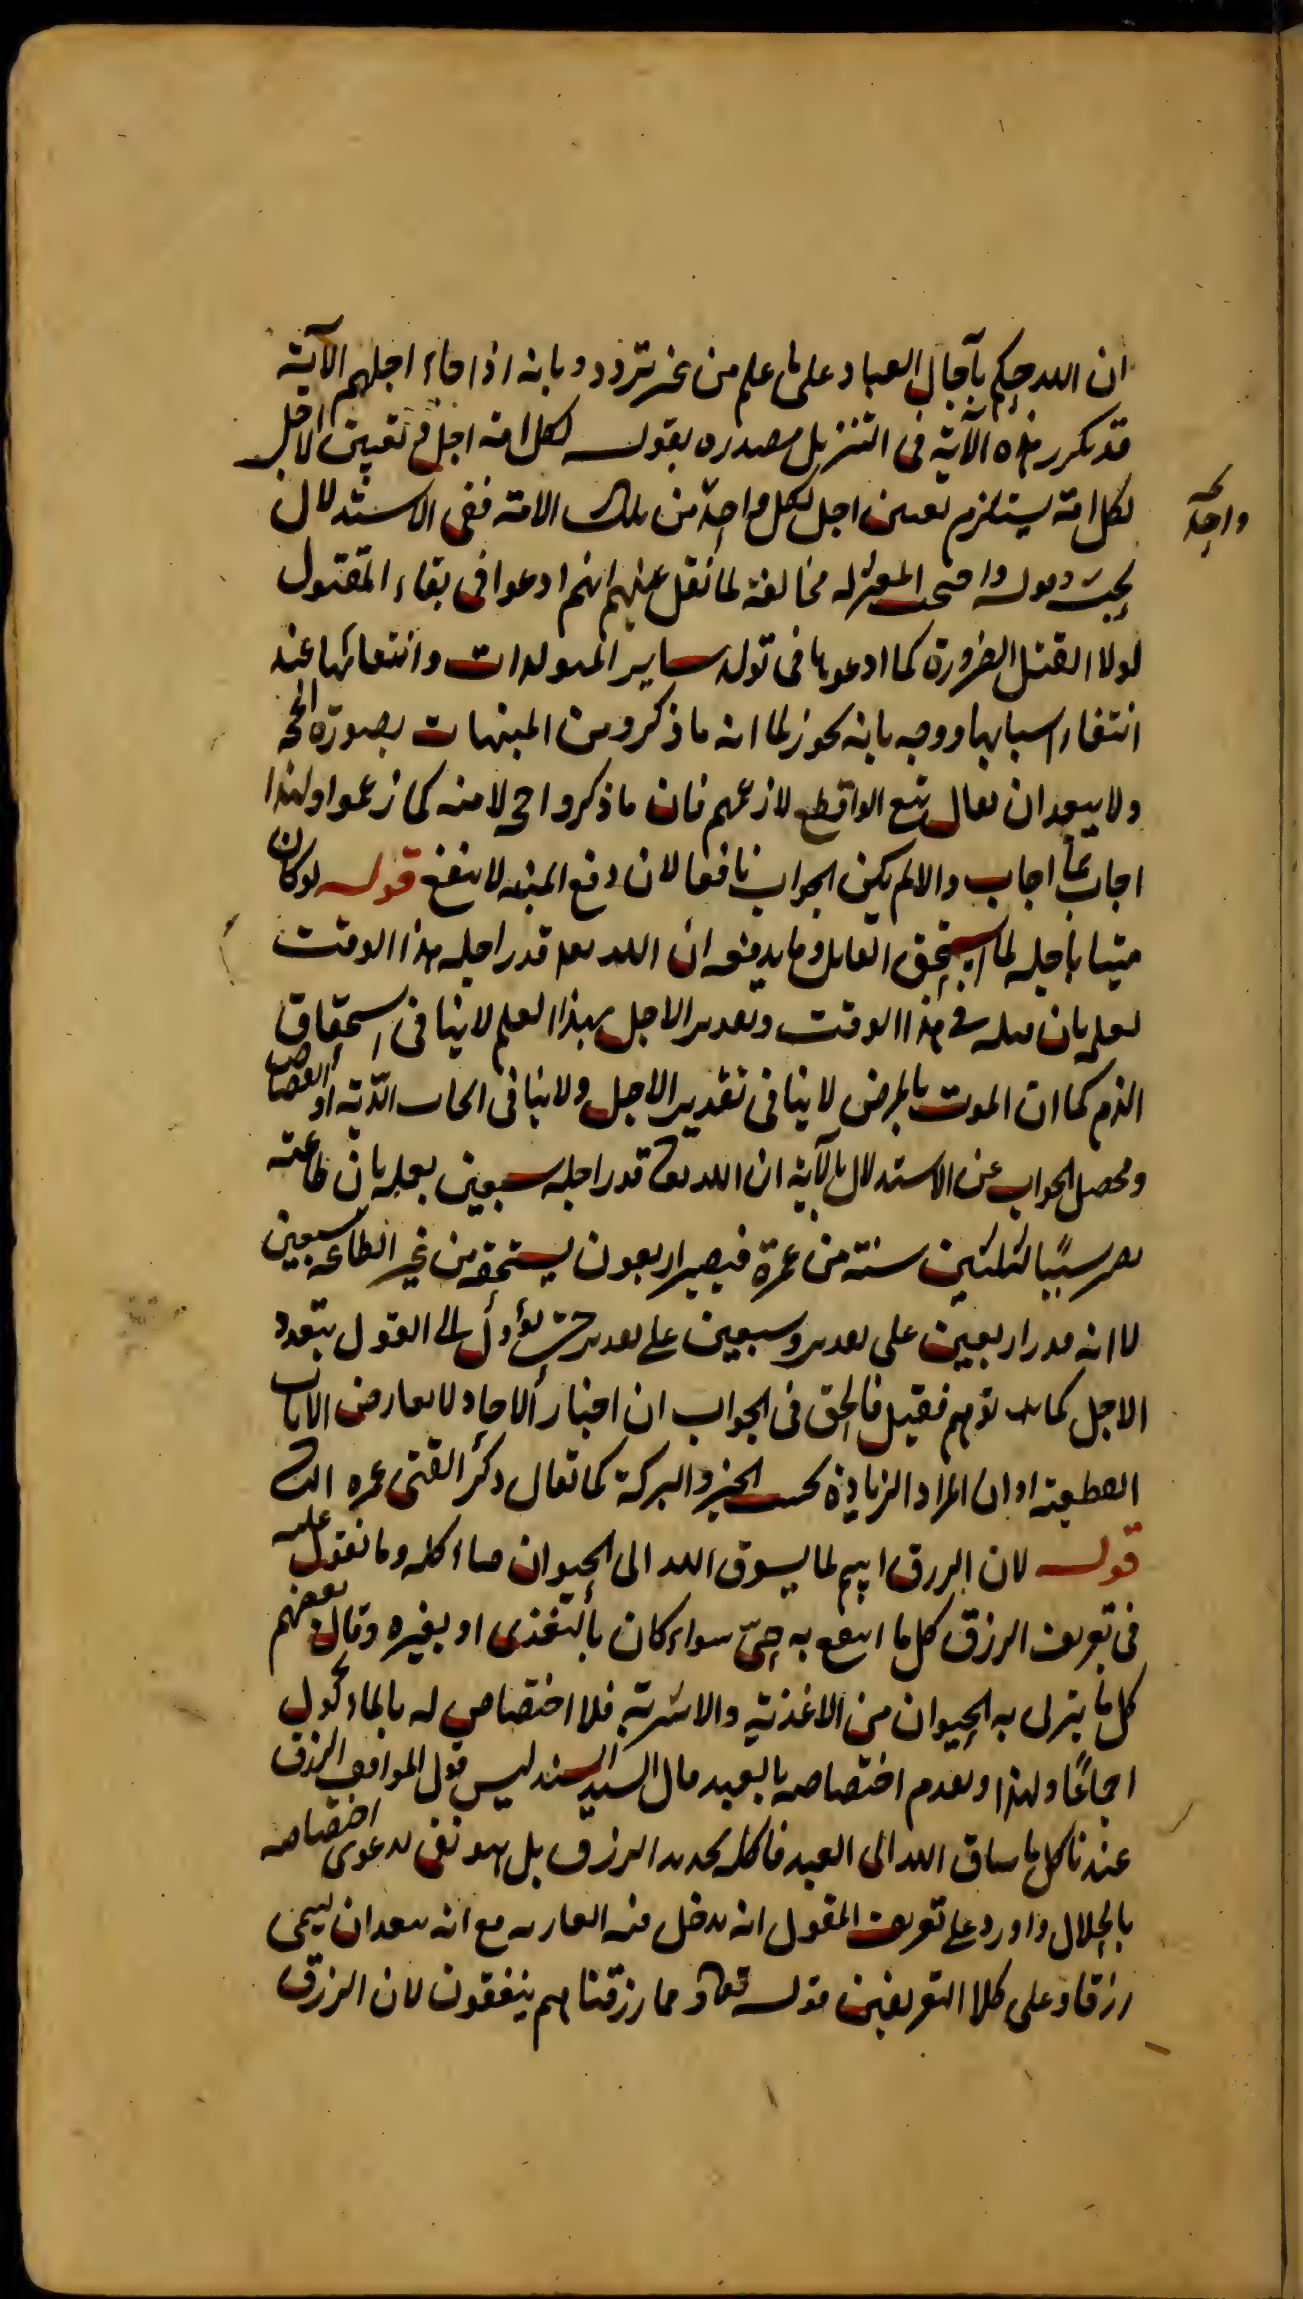 ان الله حكم بآجال العباد على ما علم من غير تردد وبانه اذا جاء اجلهم الآية
قد تكرر هذه الآية فى التنزيل مصدره بقوله لكل امة اجل فتعيين الاجل
لكل امة يستلزم تعيين اجل لكل واحد من تلك الامة ففى الاستدلال
واحد
بحث وقوله واحتجت المعتزله مخالفة لما نقل عنهم انهم ادعوا فى بقاء المقتول
لولا القتل الضرورة كما ادعوها فى تولد ساير المتولدات وانتفائها عند
انتفاء اسبابها ووجه بانه يجوز لما انه ما ذكروه من المنبهات بصورة الحجة
ولا يبعد ان يقال تبع الواقع لا زعمهم فان ما ذكروا حجة لا منبه كما زعموا ولهذا
اجاب بما اجاب والا لم يكن الجواب نافعا لان دفع المنبه لا ينفع قوله لو كان
ميتا باجله لما استحق القاتل وما يدفعه ان الله تعالى قدر اجله هذا الوقت
لعلمه بان قتله فى هذا الوقت وتقدير الاجل بهذا العلم لا ينافى استحقاق
الذم كما ان الموت بالمرض لا ينافى تقدير الاجل ولا ينافى ايجاب الدية او القصاص
ومحصل الجواب عن الاستدلال بالآية ان الله تعالى قدر اجله سبعين بعلمه بان طاعته
تصير سببا لثلثين سنة من عمره فيصير اربعون يستحقه من غير الطاعة سبعين
لا انه قدر اربعين على تقدير وسبعين على تقدير حتى يؤول الى القول بتعدد
الاجل كما توهم فقيل فالحق فى الجواب ان اخبار الآحاد لا يعارض الآيات
القطعية او ان المراد الزيادة بحسب الخير والبركة كما يقال ذكر الفتى عمره الثانى
قوله لان الرزق اسم لما يسوق الله الى الحيوان فياكله وما نقول عليه
فى تعريف الرزق كل ما انتفع به حى سواء كان بالتغذى او بغيره وقال بعضهم
كل ما يتربى به الحيوان من الاغذية والاشربة فلا اختصاص له بالمأكول
اجماعا ولهذا ولعدم اختصاصه بالعبد قال السيد السند ليس قول المواقف الرزق
عندنا كل ما ساق الله الى العبد فاكله تحديد الرزق بل هو نفى لدعوى اختصاصه
بالحلال واورد على تعريف المقول انه يدخل فيه العاريه مع انه يبعد ان يسمى
رزقا وعلى كلا التعريفين قوله تعالى ومما رزقناهم ينفقون لان الرزق